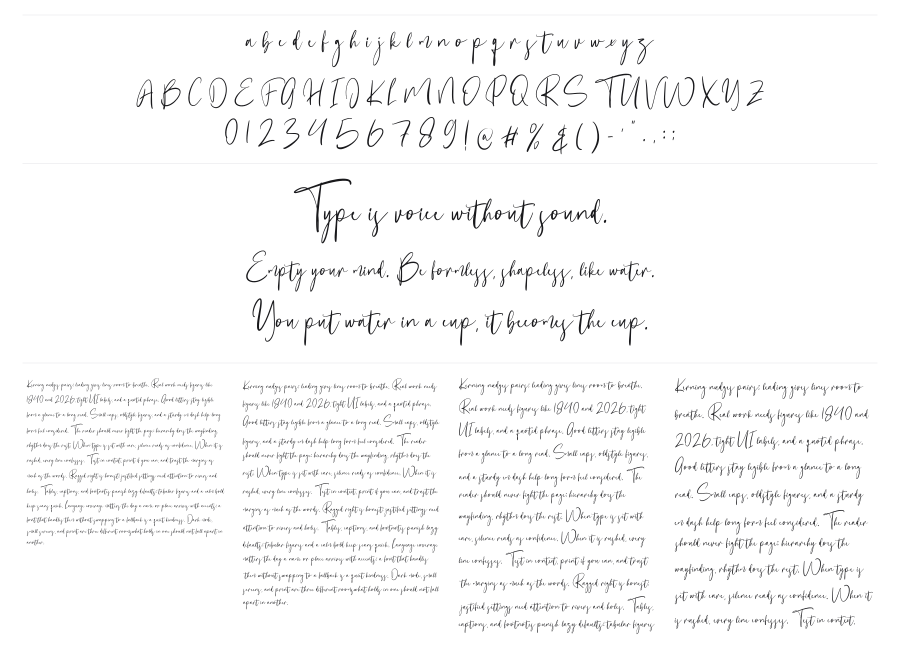 a b c d e f g h i j k l m n o p q r s t u v w x y z
A B C D E F G H I J K L M N O P Q R S T U V W X Y Z
0 1 2 3 4 5 6 7 8 9 ! @ # % & ( ) - ' " . , : ;
Type is voice without sound.
Empty your mind. Be formless, shapeless, like water.
You put water in a cup, it becomes the cup.
Kerning nudges pairs; leading gives lines room to breathe. Real work needs figures like
1840 and 2026, tight UI labels, and a quoted phrase. Good letters stay legible
from a glance to a long read. Small caps, oldstyle figures, and a sturdy em dash help long
form feel considered. The reader should never fight the page: hierarchy does the wayfinding,
rhythm does the rest. When type is set with care, silence reads as confidence. When it is
rushed, every line confesses. Test in context, print if you can, and trust the margins as
much as the words. Ragged right is honest; justified settings need attention to rivers and
holes. Tables, captions, and footnotes punish lazy defaults: tabular figures and a bold
keep scans quick. Language matters the day a name or place arrives with accents; a
font that handles them without swapping to a fallback is a quiet kindness. Dark mode,
small screens, and print are three different rooms; what holds in one should not fall apart in
another.
Kerning nudges pairs; leading gives lines room to breathe. Real work needs
figures like 1840 and 2026, tight UI labels, and a quoted phrase.
Good letters stay legible from a glance to a long read. Small caps, oldstyle
figures, and a sturdy em dash help long form feel considered. The reader
should never fight the page: hierarchy does the wayfinding, rhythm does the
rest. When type is set with care, silence reads as confidence. When it is
rushed, every line confesses. Test in context, print if you can, and trust the
margins as much as the words. Ragged right is honest; justified settings need
attention to rivers and holes. Tables, captions, and footnotes punish lazy
defaults: tabular figures and a bold keep scans quick. Language
matters the day a name or place arrives with accents; a font that handles
them without swapping to a fallback is a quiet kindness. Dark mode, small
screens, and print are three different rooms; what holds in one should not fall
apart in another.
Kerning nudges pairs; leading gives lines room to breathe.
Real work needs figures like 1840 and 2026, tight
UI labels, and a quoted phrase. Good letters stay legible
from a glance to a long read. Small caps, oldstyle figures,
and a sturdy em dash help long form feel considered. The
reader should never fight the page: hierarchy does the
wayfinding, rhythm does the rest. When type is set with
care, silence reads as confidence. When it is rushed, every
line confesses. Test in context, print if you can, and trust
the margins as much as the words. Ragged right is honest;
justified settings need attention to rivers and holes. Tables,
captions, and footnotes punish lazy defaults: tabular figures
Kerning nudges pairs; leading gives lines room to
breathe. Real work needs figures like 1840 and
2026, tight UI labels, and a quoted phrase.
Good letters stay legible from a glance to a long
read. Small caps, oldstyle figures, and a sturdy
em dash help long form feel considered. The reader
should never fight the page: hierarchy does the
wayfinding, rhythm does the rest. When type is
set with care, silence reads as confidence. When it
is rushed, every line confesses. Test in context,